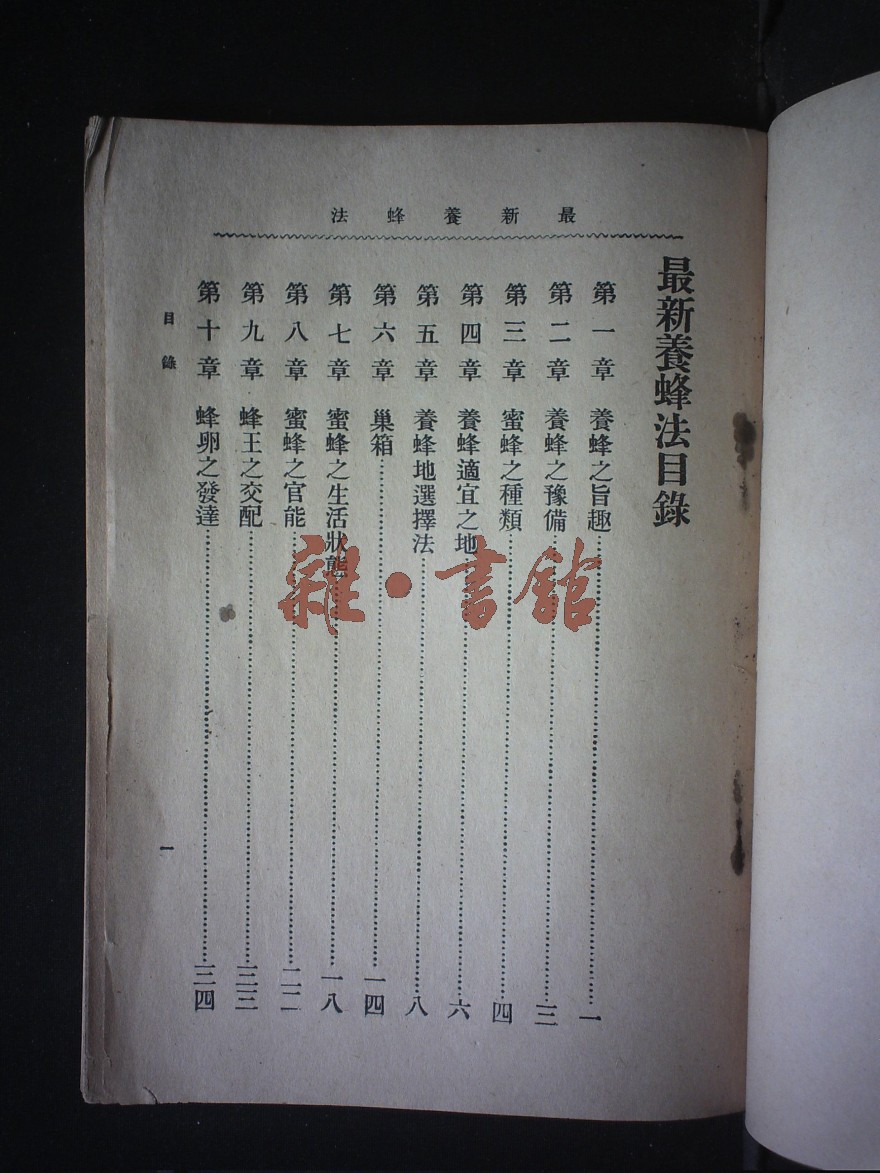 最新養蜂法
最新養蜂法目錄
第一章 養蜂之旨趣……一
第二章 養蜂之豫備……三
第三章 蜜蜂之種類……四
第四章 養蜂適宜之地……六
第五章 養蜂地選擇法……八
第六章 巢箱……一四
第七章 蜜蜂之生活狀態……一八
第八章 蜜蜂之官能……二二
第九章 蜂王之交配……三三
第十章 蜂卵之發達……三四
目錄
一
雜·書館